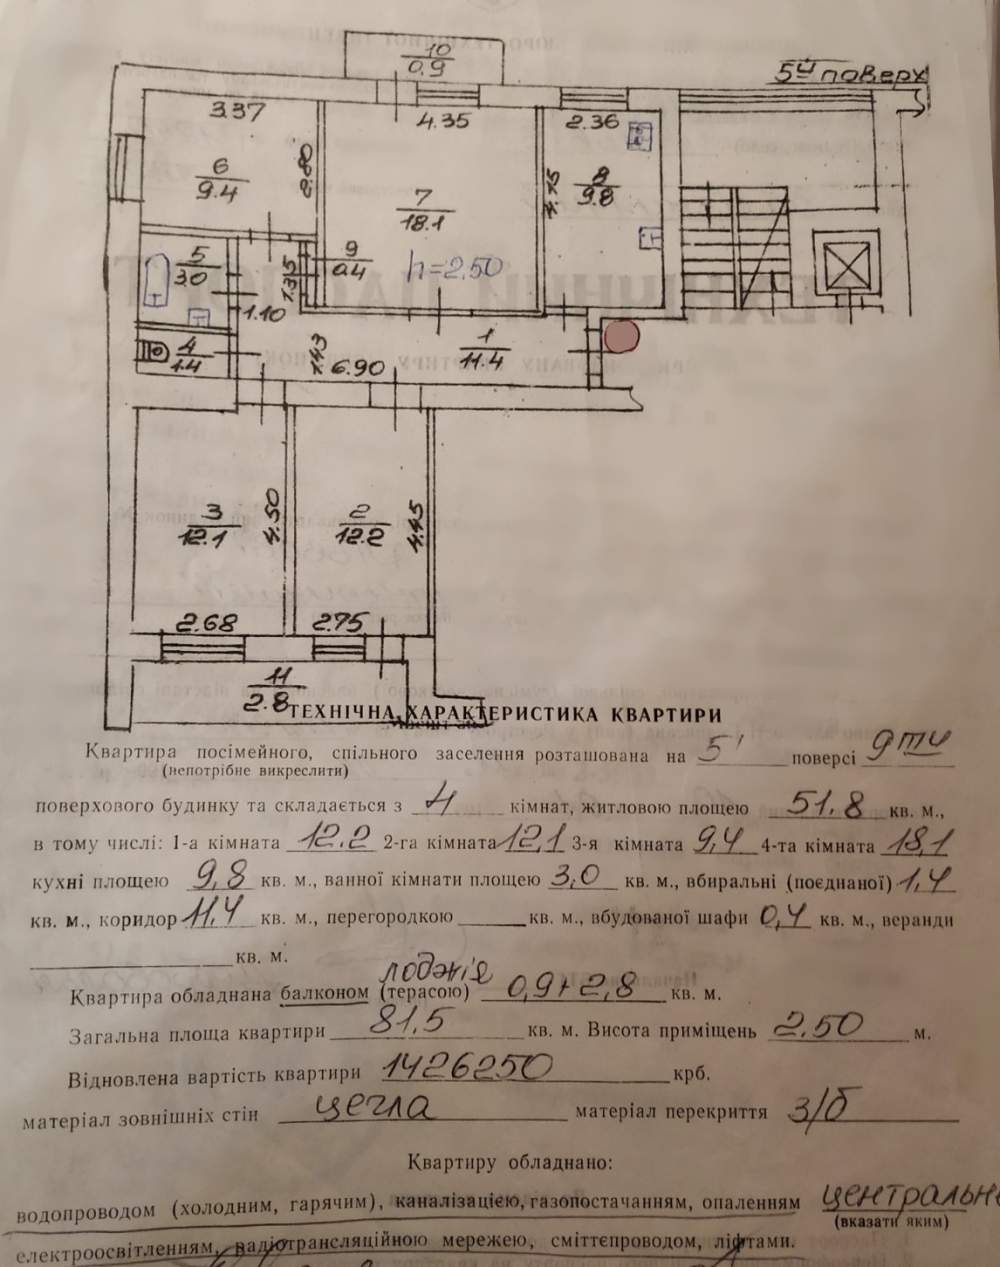 10
0.9
5й поверх
3.37
4.35
2.36
6
9.4
2.80
7
18.1
4.15
8
9.8
5
3.0
9
0.4
h=2.50
1.35
1.10
4
1.4
1.43
6.90
1
11.4
3
12.1
4.50
2
12.2
4.45
2.68
2.75
11
2.8
ТЕХНІЧНА ХАРАКТЕРИСТИКА КВАРТИРИ
Квартира посімейного, спільного заселення розташована на 5 поверсі 9ти
(непотрібне викреслити)
поверхового будинку та складається з 4 кімнат, житловою площею 51.8 кв. м.,
в тому числі: 1-а кімната 12.2 2-га кімната 12,1 3-я кімната 9,4 4-та кімната 18,1
кухні площею 9,8 кв. м., ванної кімнати площею 3,0 кв. м., вбиральні (поєднаної) 1,4
кв. м., коридор 11,4 кв. м., перегородкою кв. м., вбудованої шафи 0,4 кв. м., веранди
кв. м.
лоджія
Квартира обладнана балконом (терасою) 0,9+2,8 кв. м.
Загальна площа квартири 81,5 кв. м. Висота приміщень 2.50 м.
Відновлена вартість квартири 1426250 крб.
матеріал зовнішніх стін цегла матеріал перекриття з/б
Квартиру обладнано:
водопроводом (холодним, гарячим), каналізацією, газопостачанням, опаленням центральн
(вказати яким)
електроосвітленням, радіотрансляційною мережею, сміттєпроводом, ліфтами.